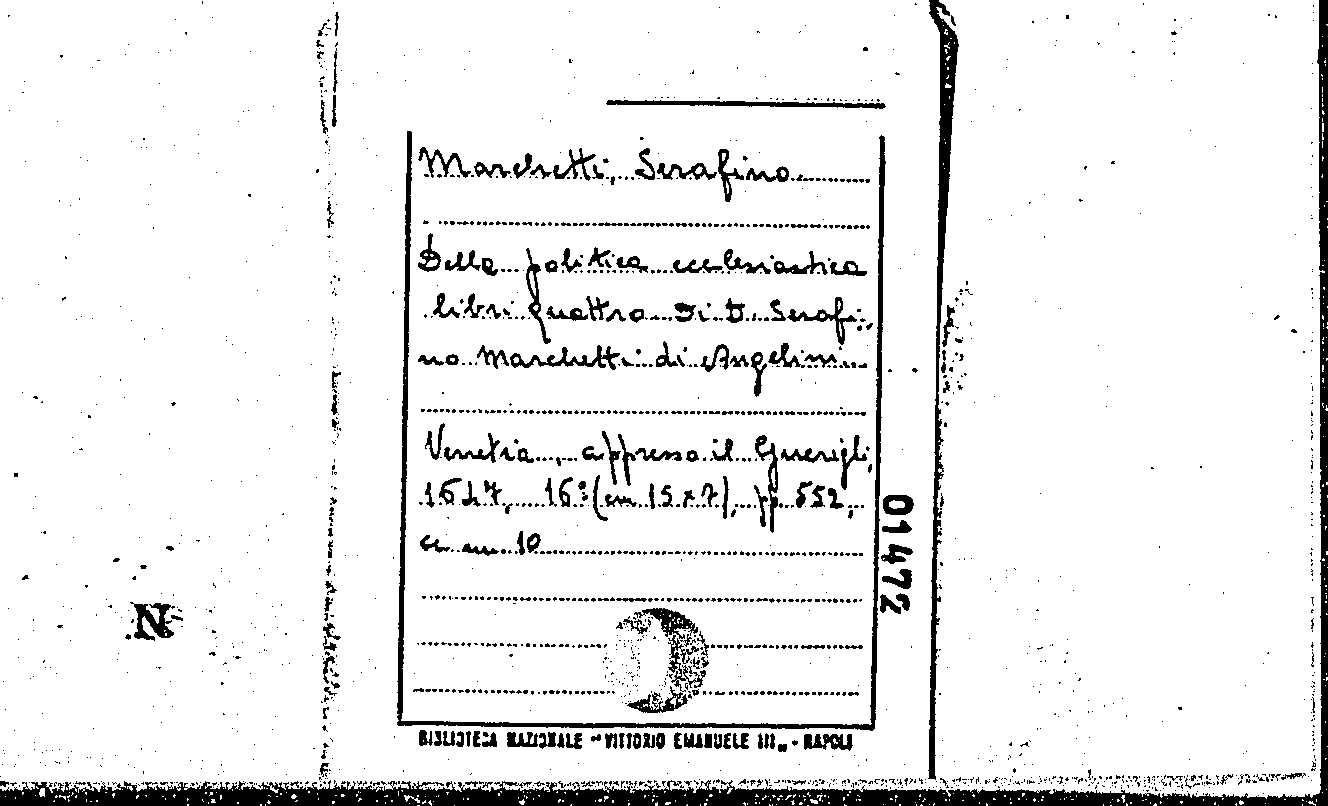 Marchetti, Serafino.
Della politica ecclesiastica
libri quattro di D. Serafi-
no Marchetti di Angelini...
Venetia, appresso il Guerigli,
1647, 16º (cm 15x7), pp. 552,
cc nn. 10
01472
BIBLIOTECA NAZIONALE "VITTORIO EMANUELE III" - NAPOLI